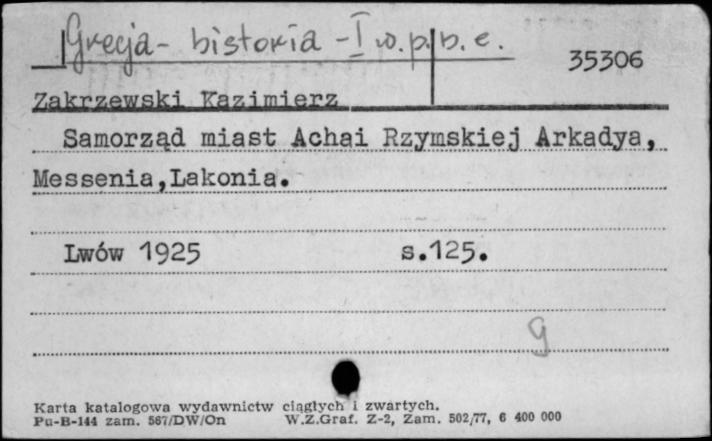 Grecja - historia - I w.p.n.e.
35306
Zakrzewski Kazimierz
Samorząd miast Achai Rzymskiej Arkadya,
Messenia,Lakonia.
Lwów 1925 s.125.
g
Karta katalogowa wydawnictw ciągłych i zwartych.
Pu-B-144 zam. 567/DW/On W.Z.Graf. Z-2, Zam. 502/77, 6 400 000